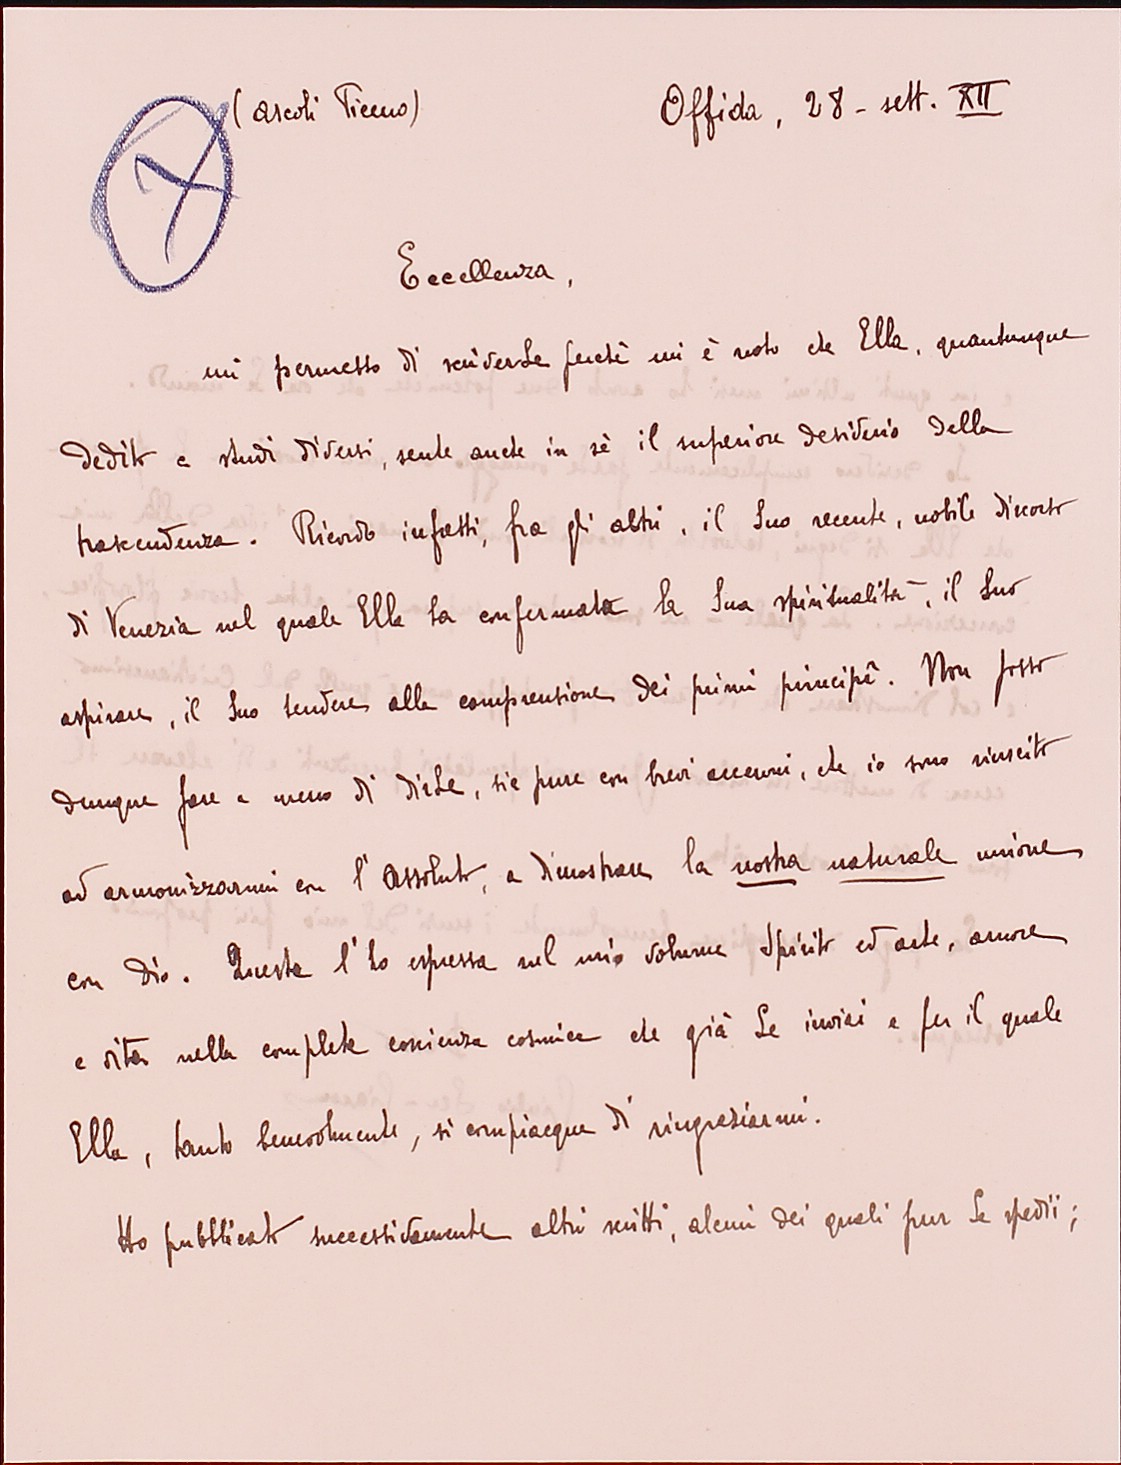 (Ascoli Piceno) Offida, 28 - sett. XII
Eccellenza,
mi permetto di scriverLe perchè mi è noto che Ella, quantunque
dedito a studi diversi, sente anche in sè il superiore desiderio della
trascendenza. Ricordo infatti, fra gli altri, il Suo recente, nobile discorso
di Venezia nel quale Ella ha confermata la Sua spiritualità, il Suo
aspirare, il Suo tendere alla comprensione dei primi principî. Non posso
dunque fare a meno di dirLe, sia pure con brevi accenni, che io sono riuscito
ad armonizzarmi con l'Assoluto, a dimostrare la nostra naturale unione
con Dio. Questa l'ho espressa nel mio volume Spirito ed arte, amore
e vita nella completa coscienza cosmica che già Le inviai e per il quale
Ella, tanto benevolmente, si compiacque di ringraziarmi.
Ho pubblicato successivamente altri scritti, alcuni dei quali pur Le spedii;